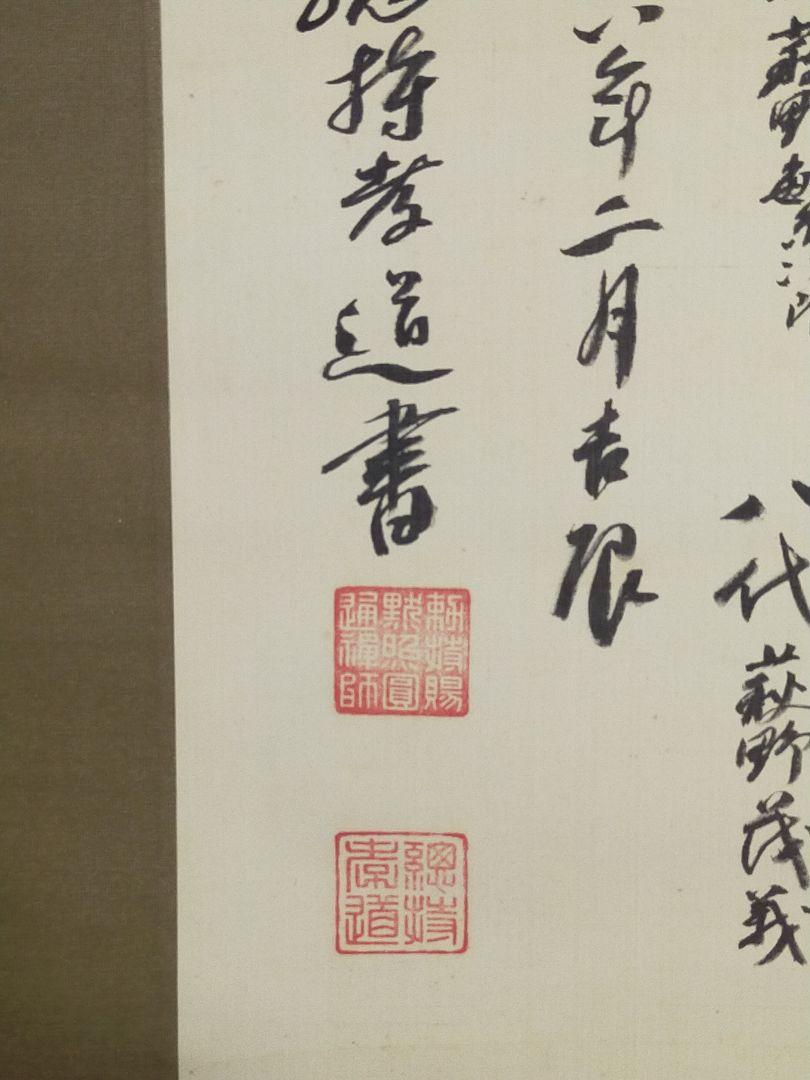 萩野
八代 萩野茂義
八年二月吉辰
持孝道書
勅特賜
黙照圓
通禪師
總持
道